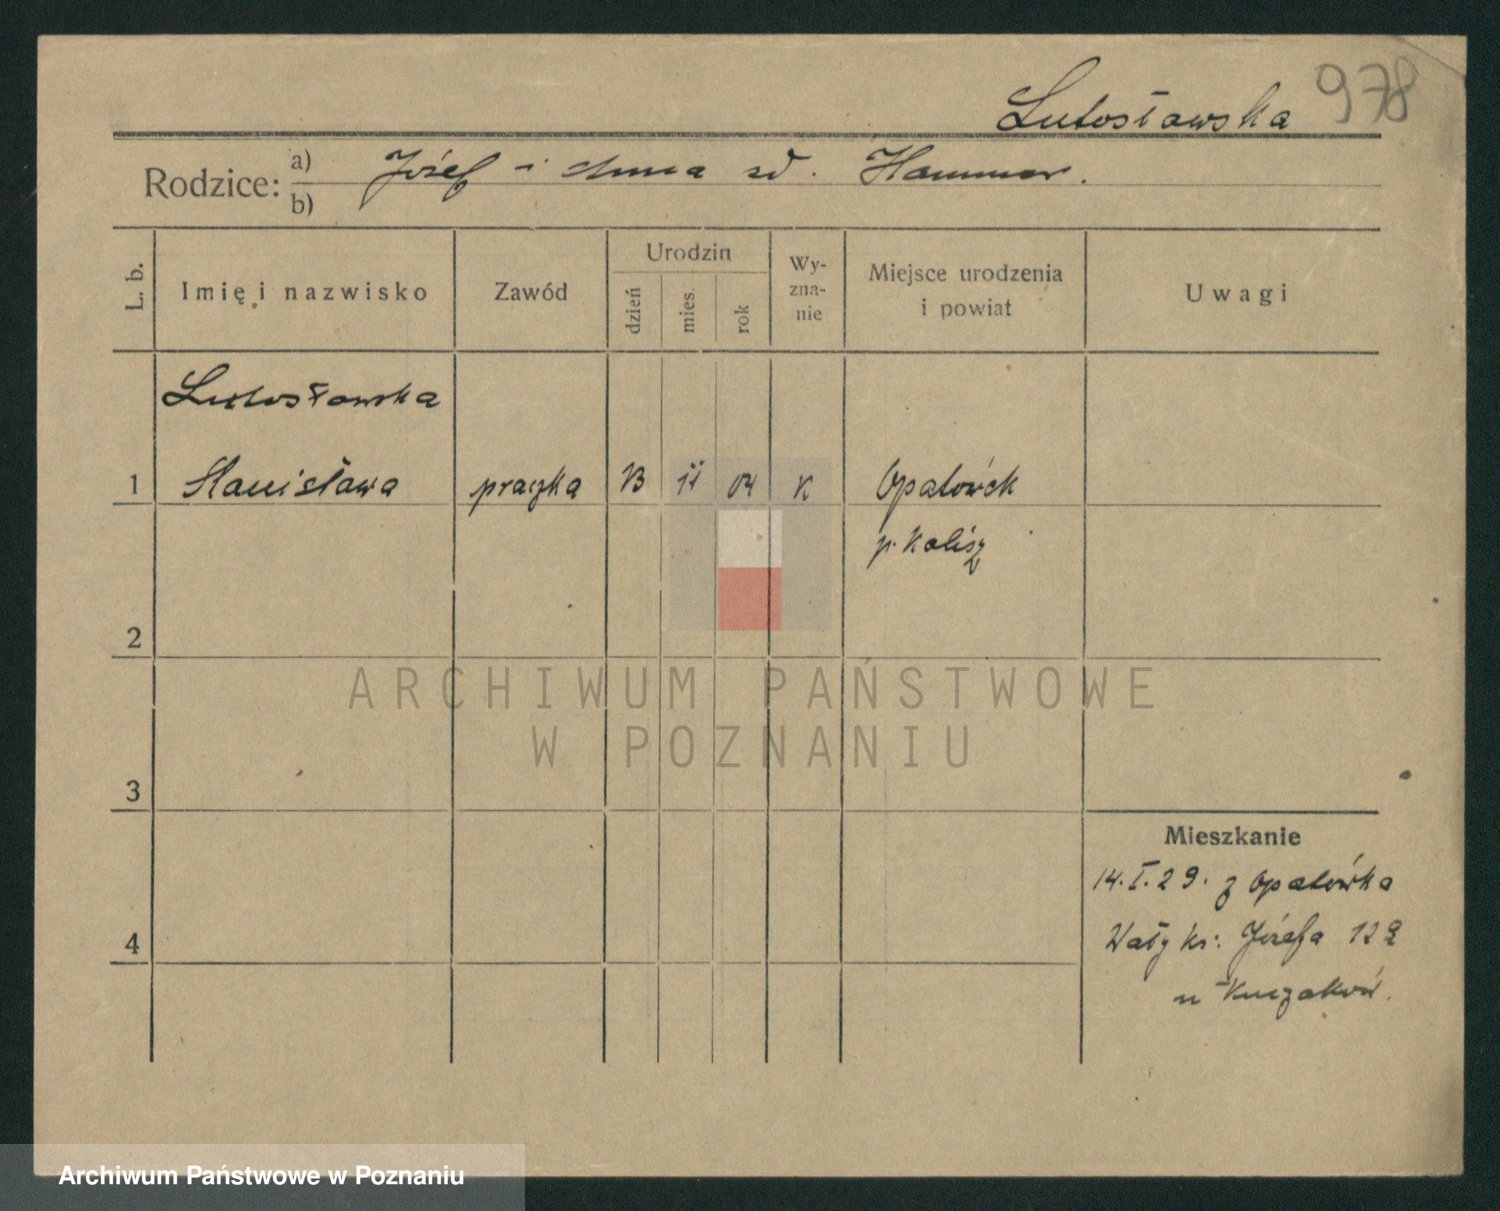 978
Lutosławska
Rodzice: a) Józef i Anna zd. Hammer.
b)
L. b. Imię i nazwisko Zawód Urodzin dzień mies. rok Wy-zna-nie Miejsce urodzenia i powiat Uwagi
Lutosławska
1 Stanisława praczka 13 11 04 K Opatówek
p. Kalisz
2
3
4
Mieszkanie
14.I.29. z Opatówka
Wały ks: Józefa 12
u
ARCHIWUM PAŃSTWOWE
W POZNANIU
Archiwum Państwowe w Poznaniu